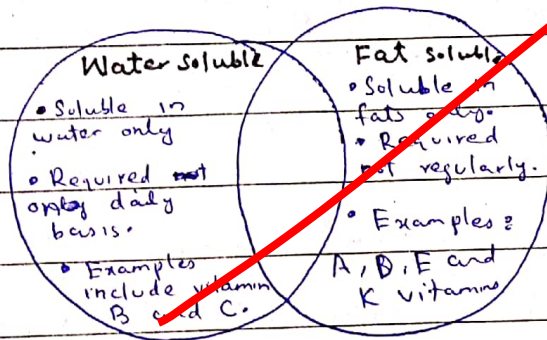 Water soluble
• Soluble in
water only
• Required not
only daily
basis.
• Examples
include vitamin
B and C.
Fat soluble
• Soluble in
fats only.
• Required
not regularly.
• Examples:
A, D, E and
K vitamins